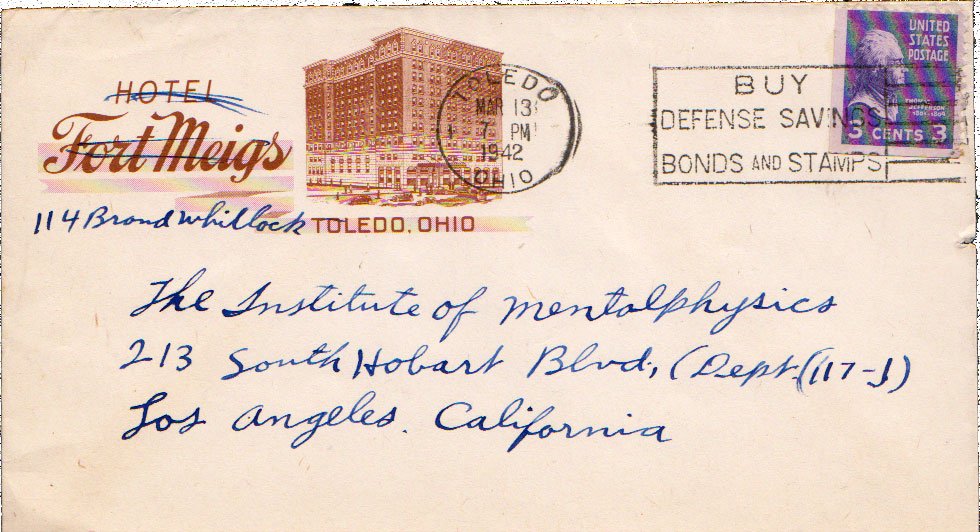 HOTEL
Fort Meigs
114 Brand Whitlock
TOLEDO, OHIO
TOLEDO
MAR 13
7 PM
1942
OHIO
BUY
DEFENSE SAVINGS
BONDS AND STAMPS
UNITED
STATES
POSTAGE
THOMAS
JEFFERSON
1801-1809
3 CENTS 3
The Institute of Mentalphysics
213 South Hobart Blvd., (Dept. (117-J)
Los Angeles. California